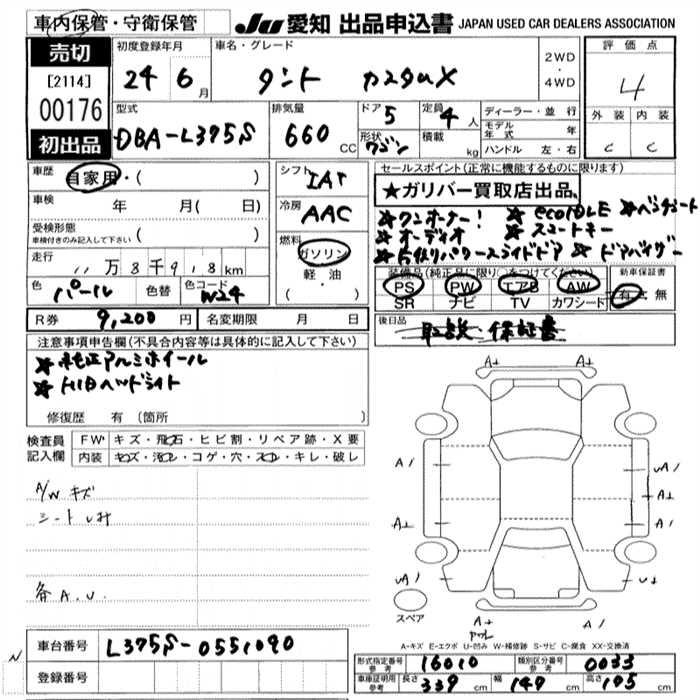 車内保管・守衛保管
JU 愛知 出品申込書 JAPAN USED CAR DEALERS ASSOCIATION
売切
[2114]
00176
初出品
初度登録年月 車名・グレード 評価点
24 6月 タント カスタムX 2WD・4WD 4
型式 排気量 ドア 5 定員 4人 ディーラー・並行 外装 内装
DBA-L375S 660cc 形状 ワゴン 積載 kg モデル年式 年 C C
ハンドル 左・右
車歴 自家用・( )
車検 年 月( 日)
受検形態 車検付きのみ記入して下さい ( )
走行 11万8千918km
色 パール 色替 色コード W24
R券 9,200円 名変期限 月 日
シフト IAT
冷房 AAC
燃料 ガソリン
軽・油
( )
セールスポイント(正常に機能するものに限ります)
★ガリバー買取店出品
★ワンオーナー! ★ecoIDLE ★ベンチシート
★オーディオ ★スマートキー
★片側パワースライドドア ★ドアバイザー
装備品(純正品に限り○をつけてください) 新車保証書
PS PW エアB AW 有・無
SR ナビ TV カワシート
後日品
取説 保証書
注意事項申告欄(不具合内容等は具体的に記入して下さい)
★純正アルミホイール
★HIDヘッドライト
修復歴 有(箇所
検査員記入欄 FW キズ・飛石・ヒビ割・リペア跡・X要
内装 キズ・汚レ・コゲ・穴・スレ・キレ・破レ
A/W キズ
シートしみ
各A.U.
A± A±
A1 UA1
A± A1
UA1 U±
スペア A± A1
A-キズ E-エクボ U-凹み W-補修跡 S-サビ C-腐食 XX-交換済
車台番号 L375S-0551090
登録番号
形式指定番号 参考 16010 類別区分番号 参考 0033
車庫証明用 参考 長さ 339cm 幅 147cm 高さ 175cm